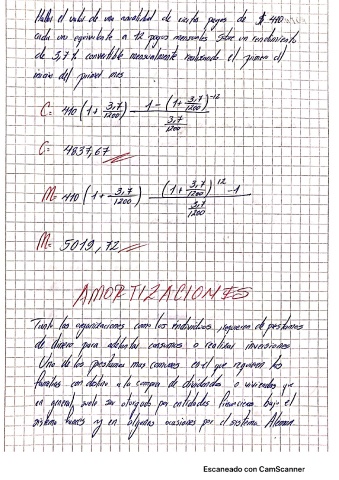 Hallar el valor de una anualidad de cierto pagos de $ 410
cada uno equivalente a 12 pagos mensuales Sobre un rendimiento
de 3,7% convertible mensualmente realizando el primero al
inicio del primer mes
C = 410 (1 + 3,7/1200) 1 - (1 + 3,7/1200)^-12 / 3,7/1200
C = 4837,67
M = 410 (1 + 3,7/1200) (1 + 3,7/1200)^12 - 1 / 3,7/1200
M = 5019,72
AMORTIZACIONES
Tanto las organizaciones como los individuos, requieren de prestamos
de dinero para adelantar consumos o realizar inversiones
Uno de los prestamos mas comunes es el que requieren las
familias con destino a la compra de o viviendas que
en general suele ser otorgado por entidades financieras bajo el
sistema frances y en algunas ocasiones por el sistema Aleman
Escaneado con CamScanner